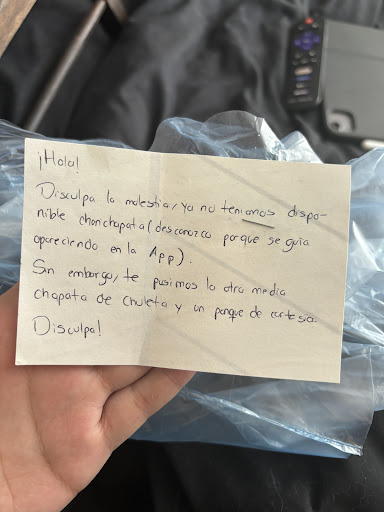 ¡Hola!
Disculpa la molestia, ya no teníamos dispo-
nible chonchapata (desconozco porque seguía
apareciendo en la App).
Sin embargo, te pusimos la otra media
chapata de chuleta y un panque de cortesía.
Disculpa!